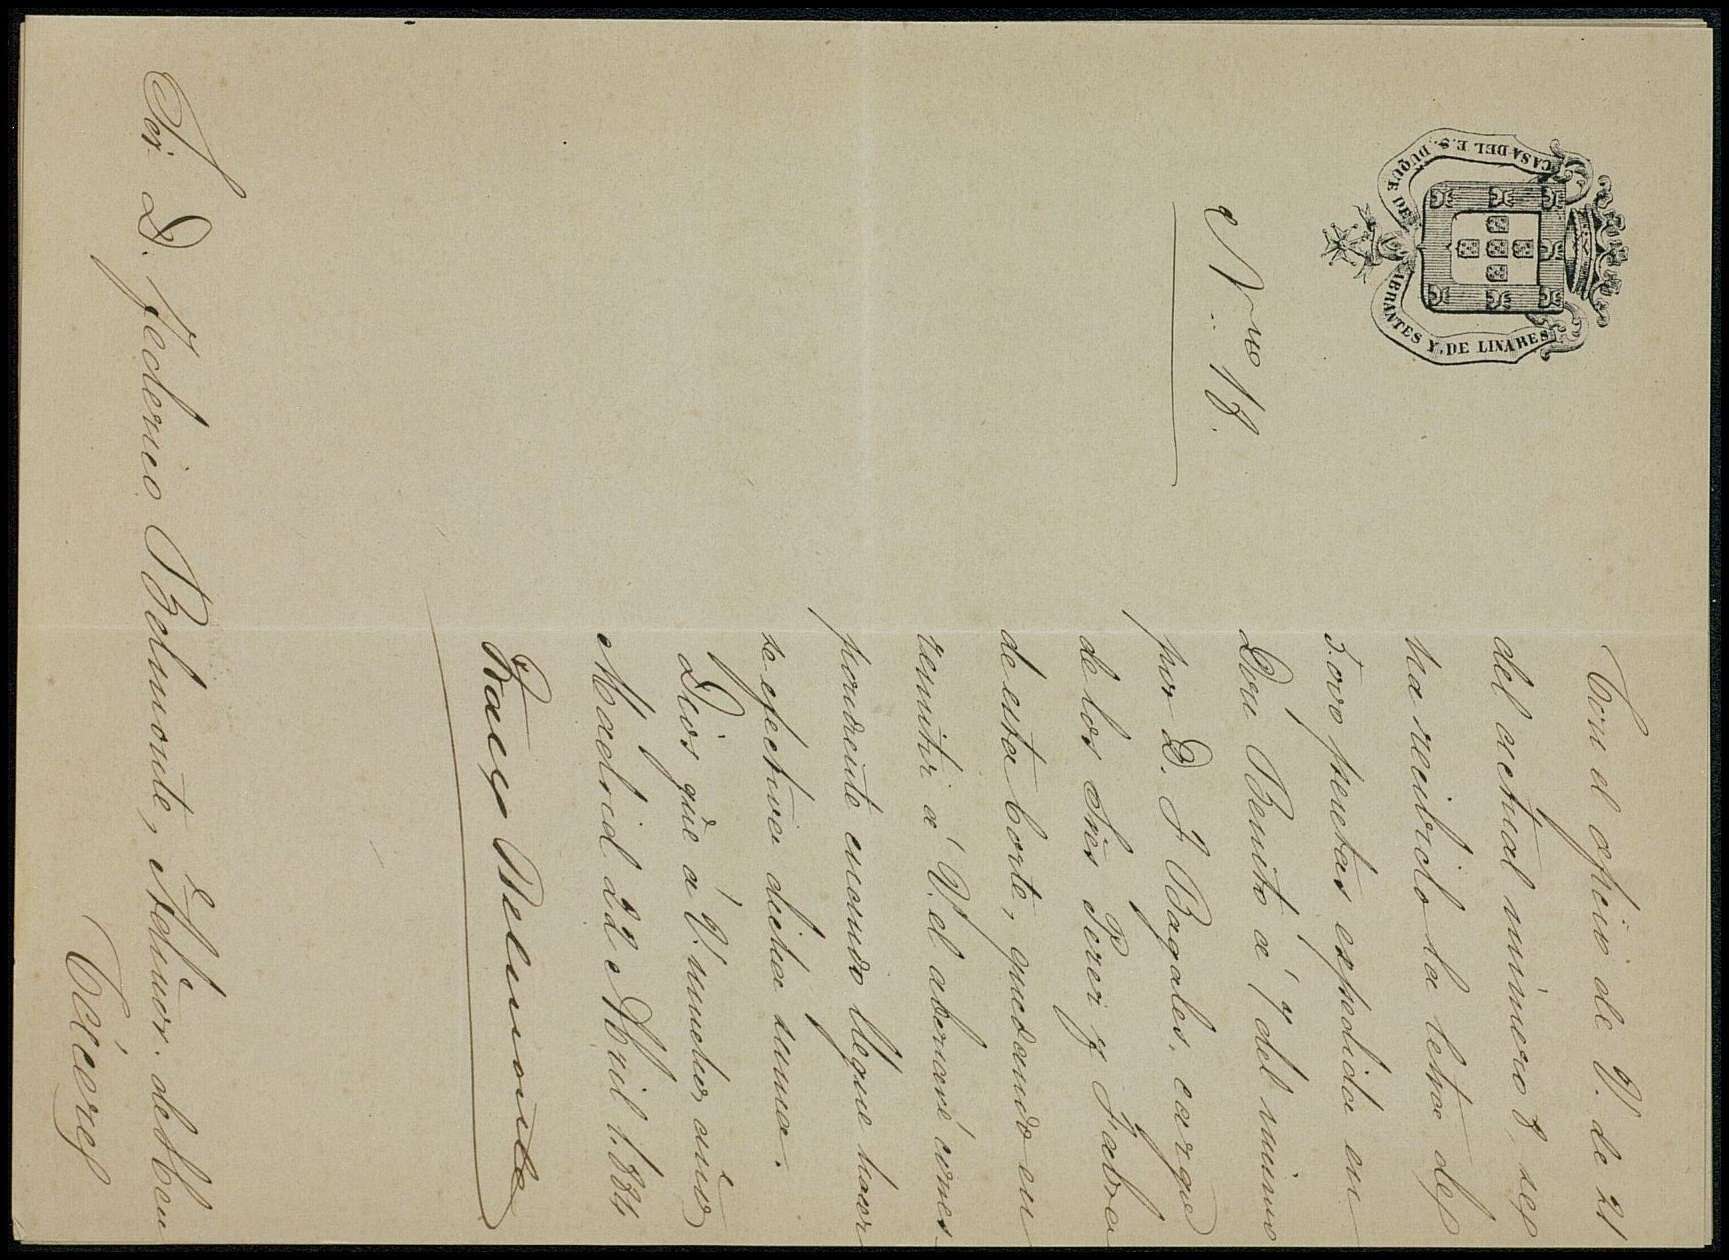 CASA DEL E. S. DUQUE DE ABRANTES Y DE LINARES
Nro 18.
Con el oficio de V. de 21
del actual número 8, se
ha recibido la letra de
5.000 pesetas expedida en
Don Benito á 17 del mismo
por D. F. Bagales, cargo
de los Sres Perez y Fabra
de esta Corte, quedando en
remitir á V. el abonaré corres
pondiente cuando llegue hacer
se efectiva dicha suma.
Dios gue á V. muchos años
Madrid 22 Abril 1.884
Franco Belmonte
Sr. D. Federico Belmonte, Admor. de
Cáceres